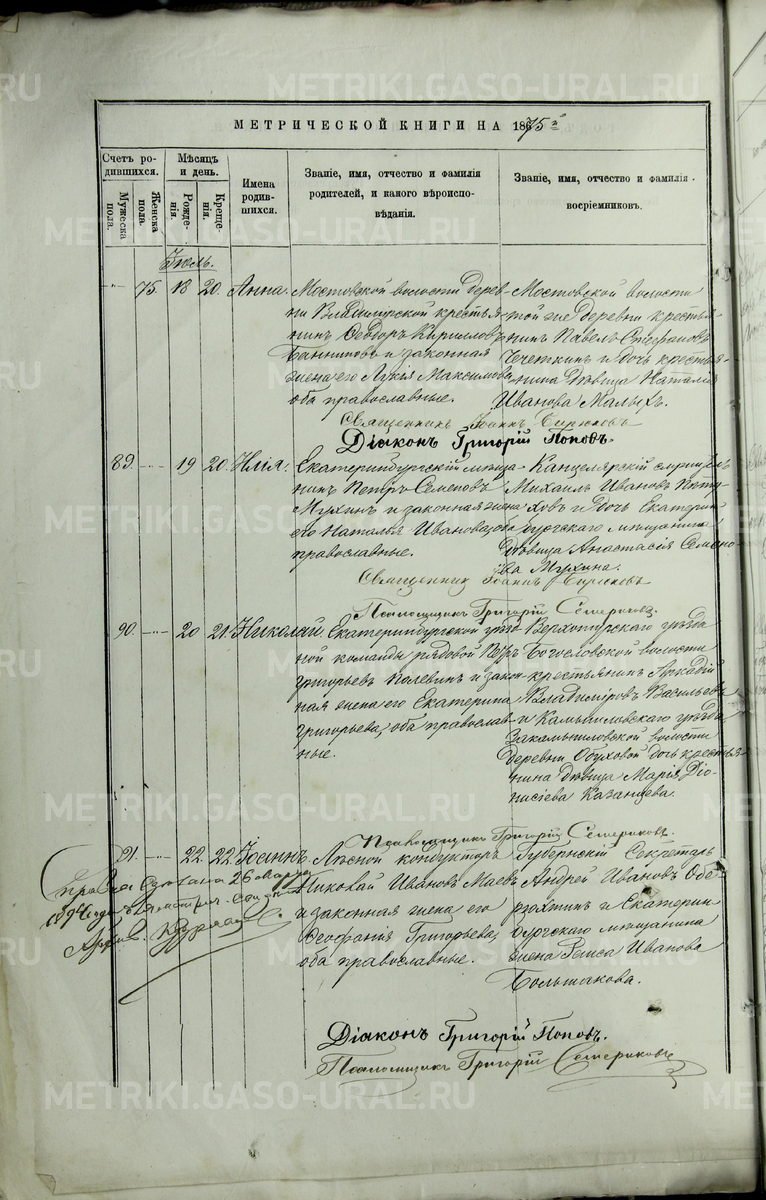 МЕТРИЧЕСКОЙ КНИГИ НА 1875 й
Счетъ родившихся.
Мужеска пола.
Женска пола.
Мѣсяцъ и день.
Рожденія.
Крещенія.
Имена родившихся.
Званіе, имя, отчество и фамилія
родителей, и какого вѣроиспо-
вѣданія.
Званіе, имя, отчество и фамилія
воспріемниковъ.
Іюль.
75. 18 20. Анна.
Мостовской волости дерев-
ни Владимірской крестья-
нинъ Ѳеодоръ Кириловъ
Банниковъ и законная
жена его Лукія Максимова
оба православные.
Мостовской волости
той же деревни крестья-
нинъ Павелъ Стефановъ
Чечеткинъ и дочь крестья-
нина дѣвица Наталія
Иванова Малыхъ.
Священникъ Іоаннъ Бирюковъ
Діаконъ Григорій Поповъ.
89. 19 20. Илія.
Екатеринбургскій мѣща-
нинъ Петръ Семеновъ
Мухинъ и законная жена
его Наталья Иванова, оба
православные.
Канцелярскій служитель
Михаилъ Ивановъ
и дочь Екатерин-
бургскаго мѣщанина
дѣвица Анастасія Семено-
ва Мухина.
Священникъ Іоаннъ Бирюковъ
Псаломщикъ Григорій Семериковъ.
90. 20 21. Николай
Екатеринбургской уѣзд-
ной команды рядовой Петръ
Григорьевъ Полевинъ и закон-
ная жена его Екатерина
Григорьева, оба православ-
ные.
Верхотурскаго уѣзда
Богословской волости
крестьянинъ Аркадій
Владиміровъ Васильевъ
и Камышловскаго уѣзда
Закамышловской волости
деревни Обуховой дочь крестья-
нина дѣвица Марія Діо-
нисіева Казанцева.
Псаломщикъ Григорій Семериковъ.
91. 22. 22. Іоаннъ.
Лѣсной кондукторъ
Николай Ивановъ Маевъ
и законная жена его
Ѳеофанія Григорьева,
оба православные.
Губернскій Секретарь
Андрей Ивановъ Обе-
рюхтинъ и Екатерин-
бургскаго мѣщанина
жена Раиса Иванова
Большакова.
Справка сдѣлана 26 марта
1894 года
Діаконъ Григорій Поповъ.
Псаломщикъ Григорій Семериковъ
METRIKI.GASO-URAL.RU